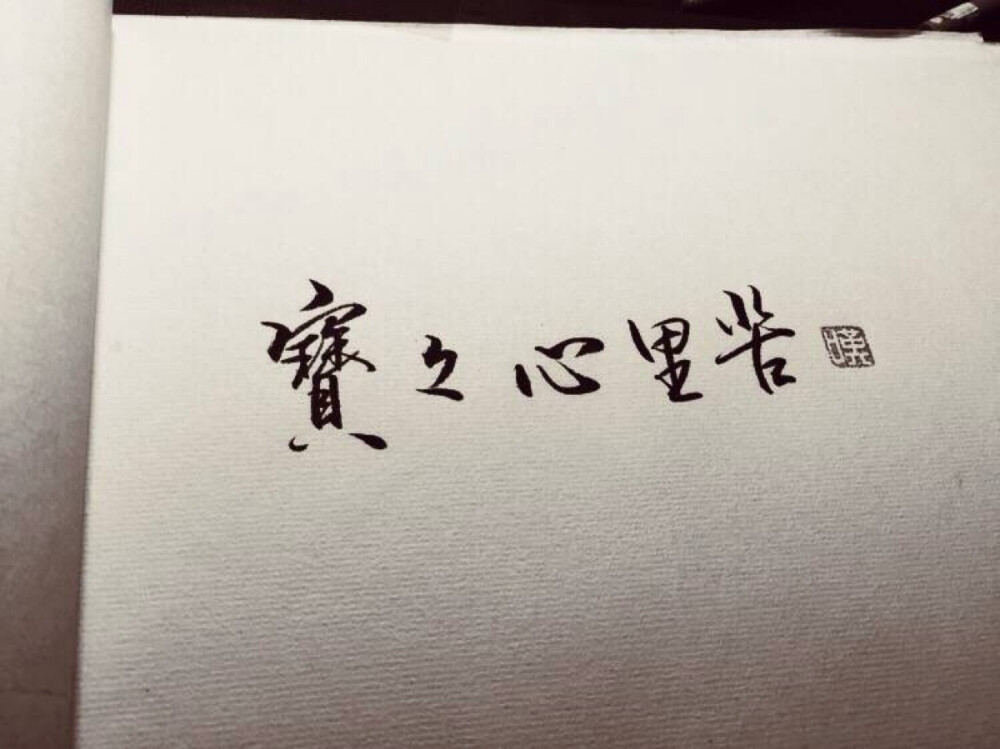 寶々心里苦